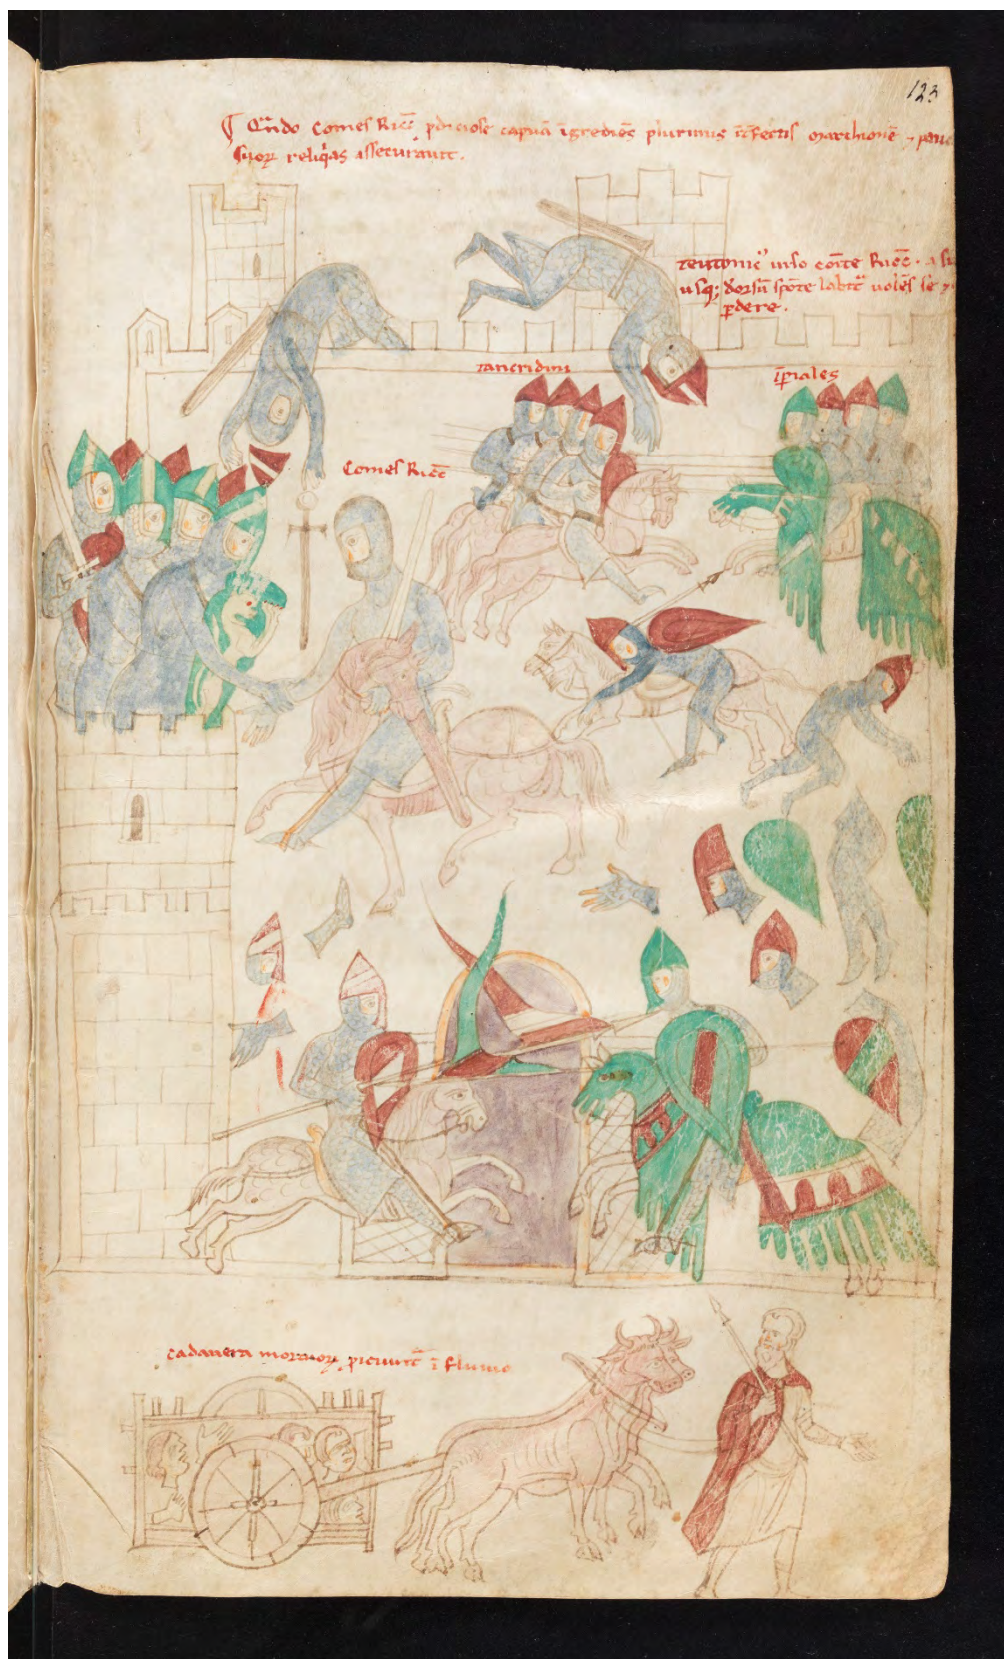 123
¶ Qn̄do Comes Ricc̄ ꝑdiciose capuā īgrediēs plurimis īt̄fectis marchionē ⁊ pauc
suoꝝ reliqͥas assecurauit.
teutonicꝰ uiso cōite Ricc̄ · a su
usqꝫ dorsū spōte labit̄ uolēs se
ꝑdere.
tancridini
īꝑiales
Comes Ricc̄
cadauera mortuoꝝ ꝓiciunt̄ ī fluuio